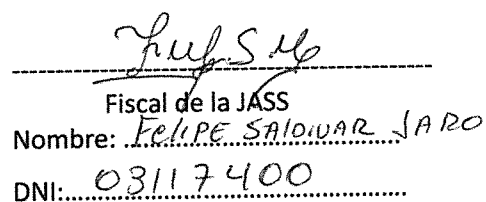 Fiscal de la JASS
Nombre: FeliPE SAlDIVAR JARO
DNI: 03117400